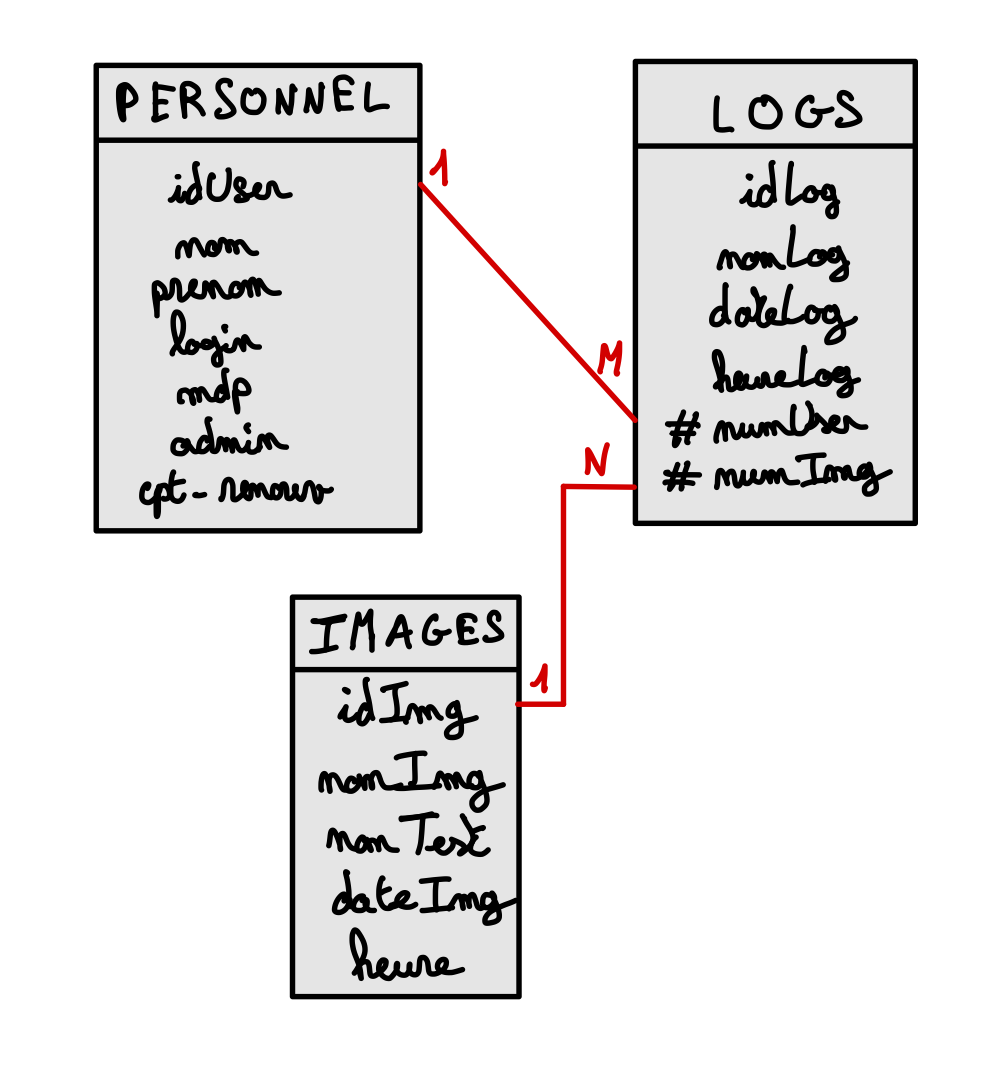 PERSONNEL
idUser
nom
prenom
login
mdp
admin
1
LOGS
idLog
nomLog
dateLog
heureLog
# numUser
# numImg
M
N
IMAGES
1
idImg
nomImg
nomTest
dateImg
heure